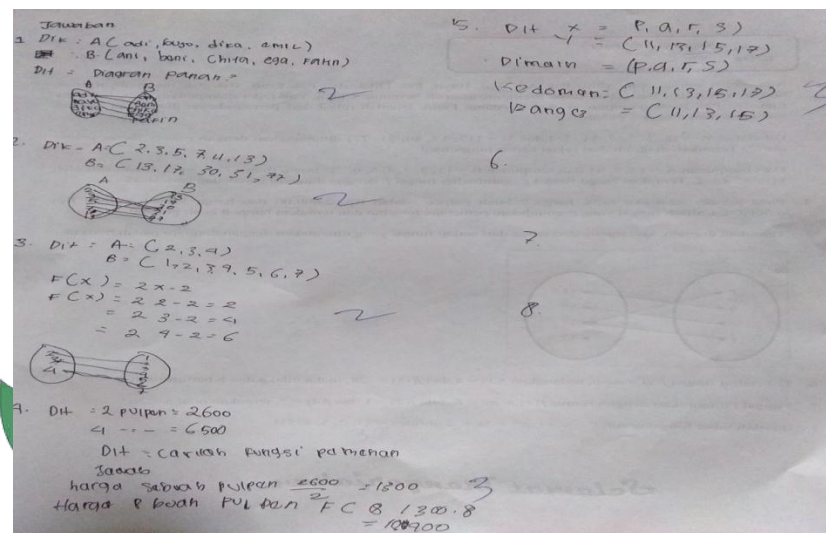 Jawaban
1 Dik : A ( adi, bayo, dira, emil)
B. ( ani, bani, Chita, ega, Fahri)
Dit = Diagran Panah =
A B
2
2. Dik = A = ( 2, 3, 5, 7, 11, 13)
B = ( 13, 17, 30, 51, 77)
A B
2
3. Dit = A = ( 2, 3, 4)
B = ( 1, 2, 3, 4, 5, 6, 7)
F(x) = 2x-2
F(x) = 2 2 - 2 = 2
= 2 3 - 2 = 4
= 2 4 - 2 = 6
2
4. Dit = 2 pulpen = 2600
4 --- = 6500
Dit = carilah fungsi
Jawab
harga sebuah pulpen 2600/2 = 1300
Harga 8 buah pulpen F ( 8 1300.8
= 10400
3
5. Dit x = P, q, r, s)
y = ( 11, 13, 15, 17)
Dimain = (p, q, r, s)
Kedoman = ( 11, 13, 15, 17)
Range = ( 11, 13, 15)
6.
7.
8.